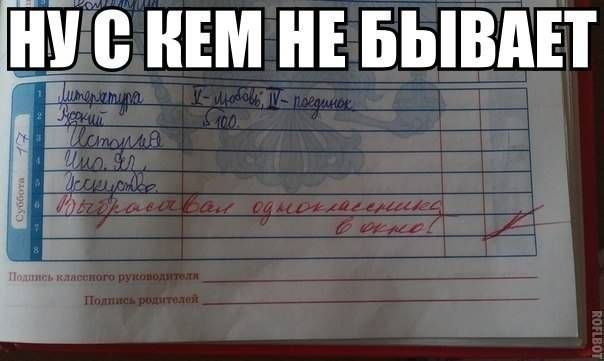 НУ С КЕМ НЕ БЫВАЕТ
1 Литература V - любовь; IV - поединок
2 Русский Б 100
3 История
4 Ин. яз.
5 Исскуство.
6 Выбрасывал одноклассника
7 в окно!
8
Суббота 17
Подпись классного руководителя
Подпись родителей
ROFLBOT